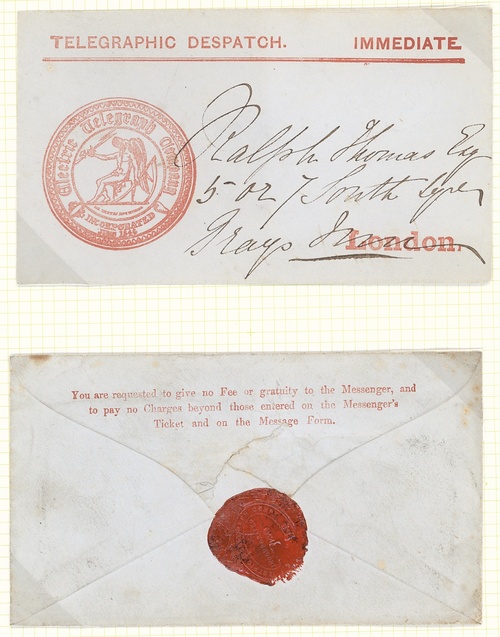 TELEGRAPHIC DESPATCH. IMMEDIATE.
Electric Telegraph Company
INCORPORATED
1846
Ralph Thomas Esq
5 or 7 South Sqre
Grays Inn
London.
You are requested to give no Fee or gratuity to the Messenger, and
to pay no Charges beyond those entered on the Messenger's
Ticket and on the Message Form.